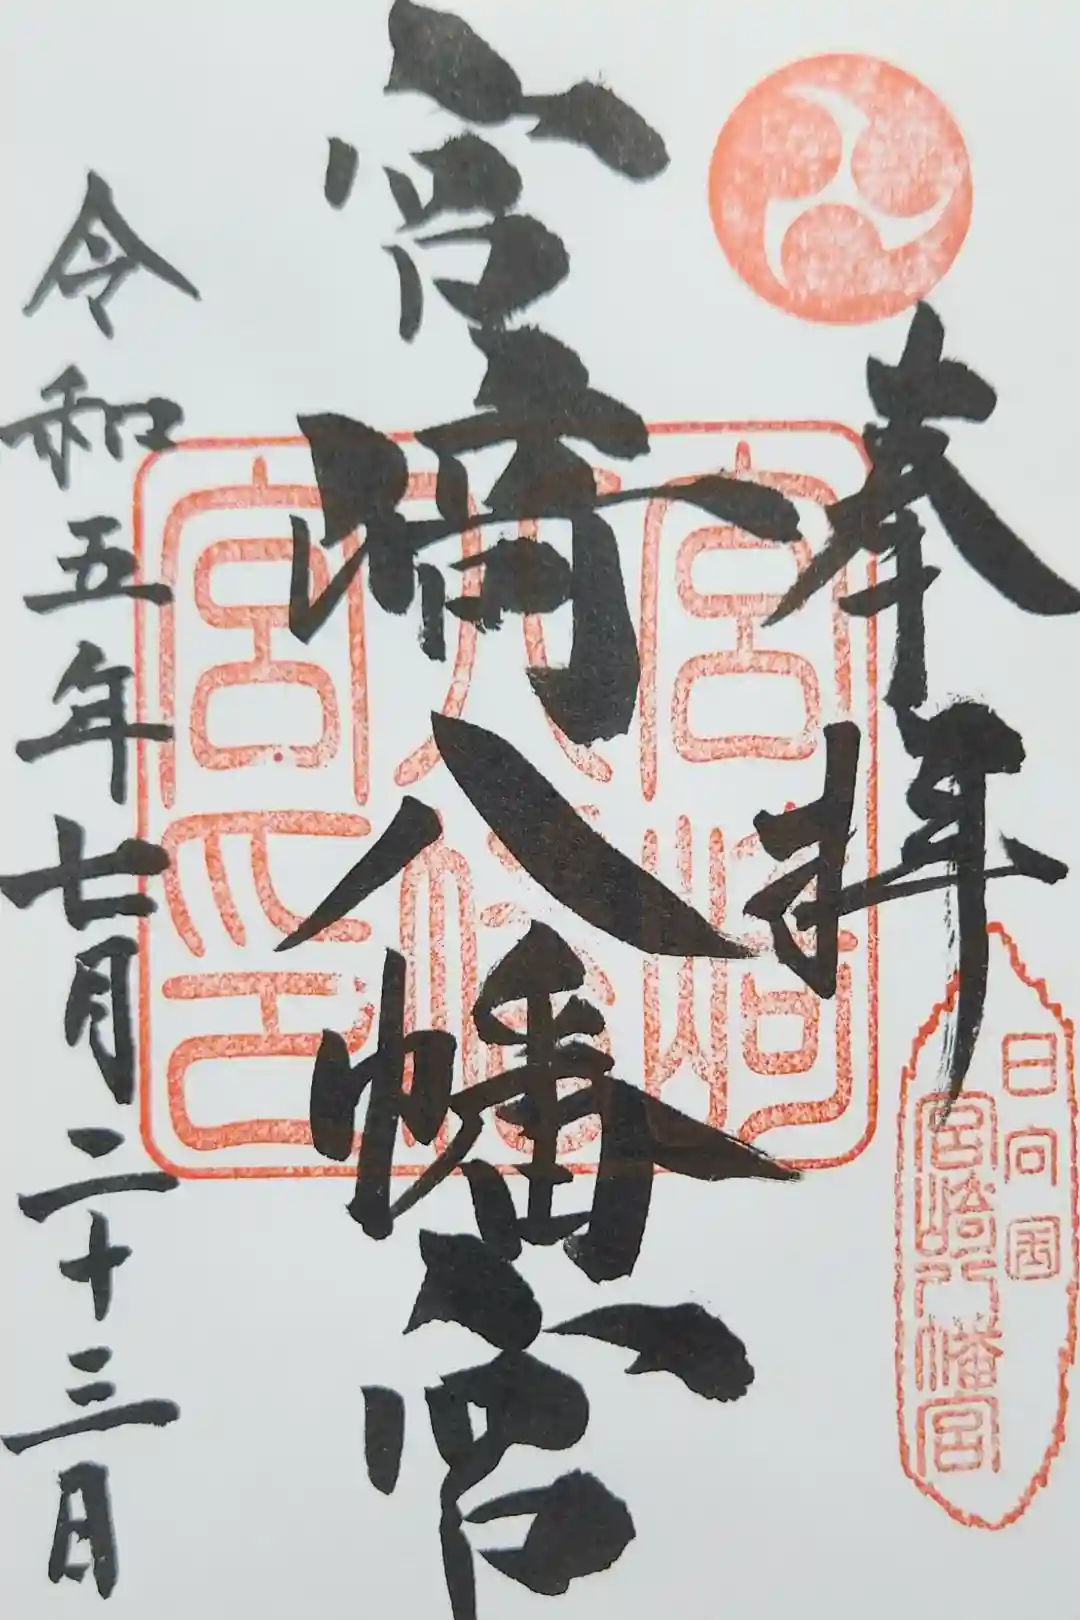 奉拝
日向国
宮崎八幡宮
宮崎八幡宮
宮崎
八幡
宮印
令和五年七月二十三日